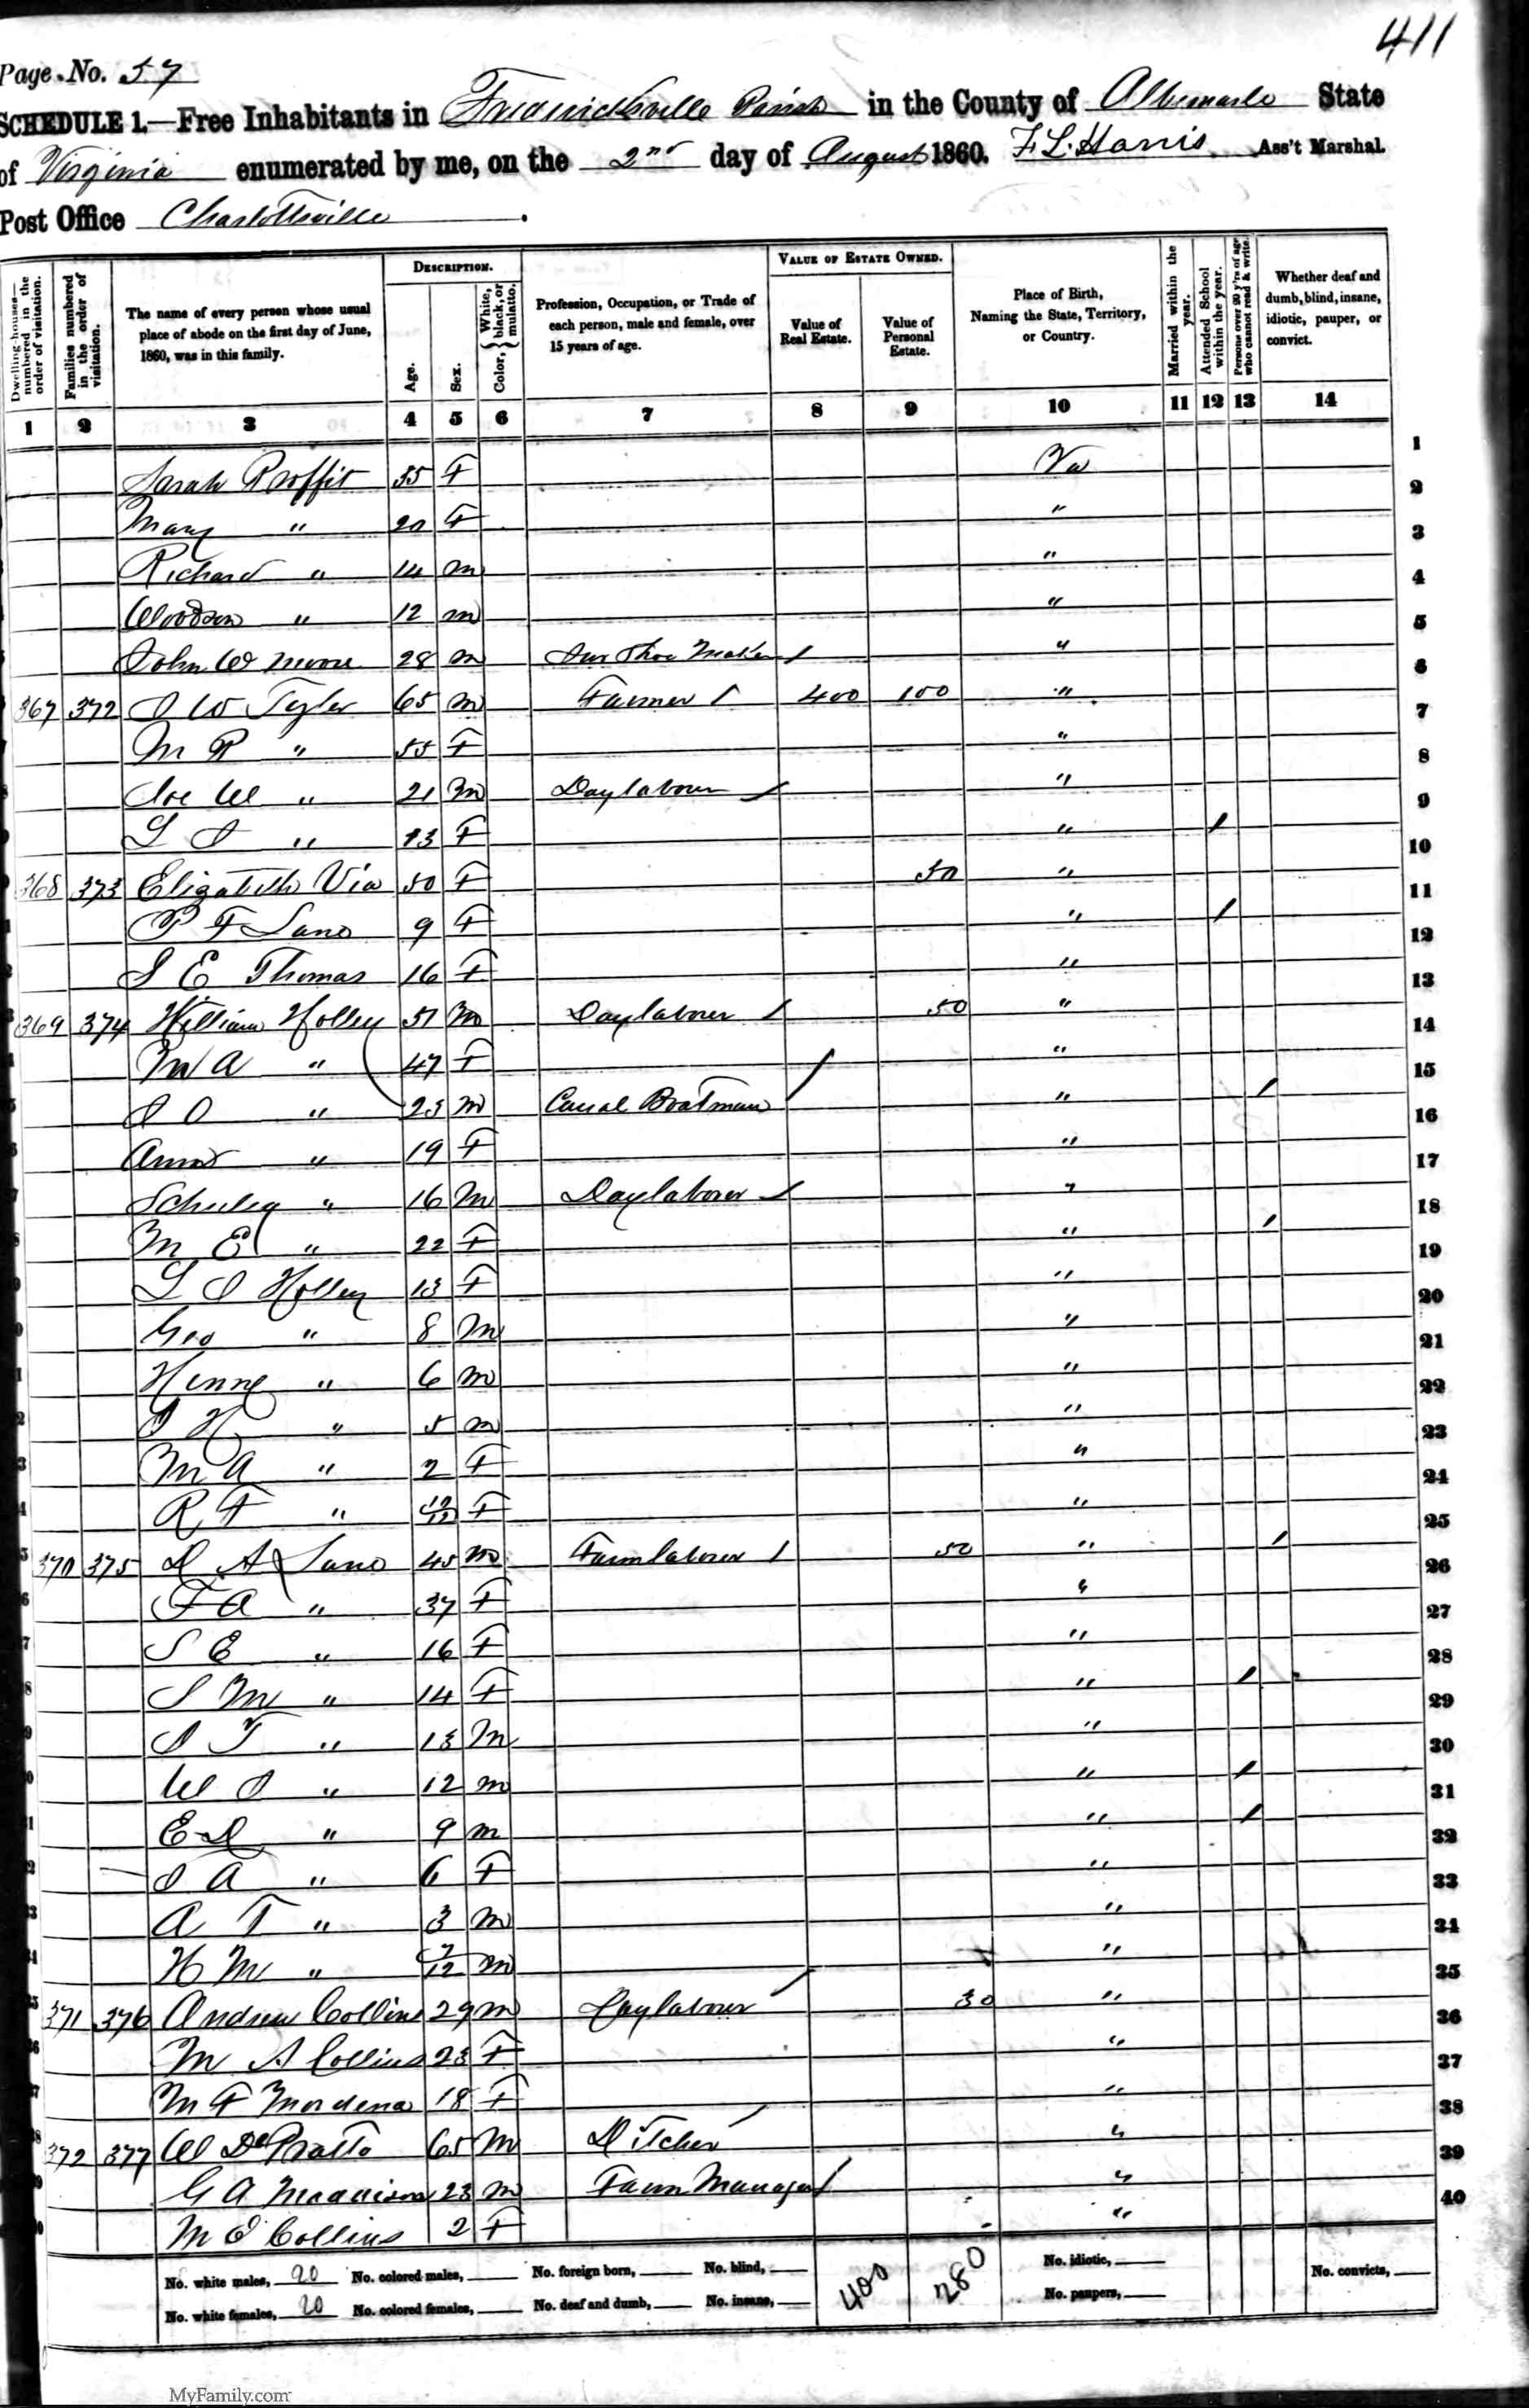 411
Page No. 57
SCHEDULE 1.—Free Inhabitants in Fredericksville Parish in the County of Albemarle State
of Virginia enumerated by me, on the 2nd day of August 1860. F. L. Harris Ass't Marshal.
Post Office Charlottsville.
Dwelling-houses—numbered in the order of visitation.
Families numbered in the order of visitation.
The name of every person whose usual place of abode on the first day of June, 1860, was in this family.
DESCRIPTION.
Age.
Sex.
Color, { White, black, or mulatto.
Profession, Occupation, or Trade of each person, male and female, over 15 years of age.
VALUE OF ESTATE OWNED.
Value of Real Estate.
Value of Personal Estate.
Place of Birth, Naming the State, Territory, or Country.
Married within the year.
Attended School within the year.
Persons over 20 y'rs of age who cannot read & write.
Whether deaf and dumb, blind, insane, idiotic, pauper, or convict.
1 2 3 4 5 6 7 8 9 10 11 12 13 14
Sarah Proffit 55 F Va 1
Mary " 20 F " 2
Richard " 14 m " 3
Woodson " 12 m " 4
John W Moore 28 m Shoe Maker / " 5
367 372 J W Tyler 65 m Farmer / 400 100 " 6
M P " 55 F " 7
Joe W " 21 m Daylabourer / " 8
L J " 13 F " / 9
368 373 Elizabeth Via 50 F 50 " 10
P F Lane 9 F " / 11
S E Thomas 16 F " 12
369 374 William Holley 51 m Daylaborer / 50 " 13
M A " 47 F " 14
J O " 23 m Canal Boatman / " / 15
Anna " 19 F " 16
" 16 m Daylaborer / " 17
M E " 22 F " / 18
L J Holley 13 F " 19
Geo " 8 m " 20
Henry " 6 m " 21
J H " 5 m " 22
M A " 2 F " 23
R F " F " 24
370 375 D A Lane 45 m Farmlaborer / 50 " / 25
F A " 37 F " 26
S E " 16 F " 27
S M " 14 F " / 28
J T " 13 m " 29
W J " 12 m " / 30
E D " 9 m " / 31
J A " 6 F " 32
A T " 3 m " 33
H M " 7/12 m " 34
371 376 Andrew Collins 29 m Daylabourer / 30 " 35
M A Collins 23 F " 36
M F 18 F " 37
372 377 W D Pratts 65 m Ditcher / " 38
G A Maddison 23 m Farm Manager / " 39
M E Collins 2 F " 40
No. white males, 20 No. colored males, No. foreign born, No. blind, 400 280 No. idiotic, No. convicts,
No. white females, 20 No. colored females, No. deaf and dumb, No. insane, No. paupers,
MyFamily.com